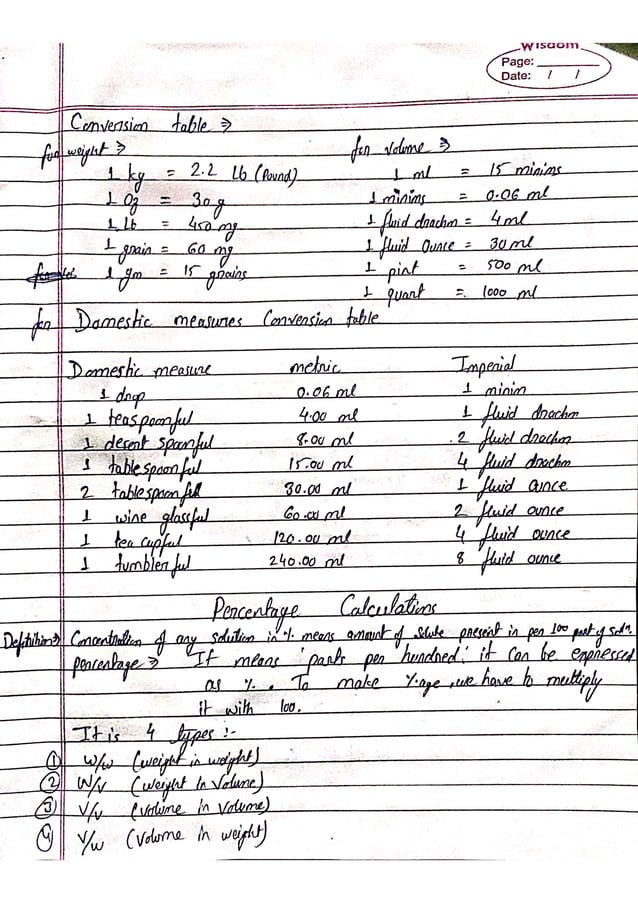 Wisdom
Page:
Date: / /
Conversion table ⇒
for weight ⇒ for volume ⇒
1 kg = 2.2 Lb (Pound) 1 ml = 15 minims
1 Oz = 30g 1 minims = 0.06 ml
1 Lb = 450 mg 1 fluid drachm = 4ml
1 grain = 60 mg 1 fluid Ounce = 30 ml
1 gm = 15 grains 1 pint = 500 ml
1 quart = 1000 ml
for Domestic measures Conversion table
Domestic measure metric Imperial
1 drop 0.06 ml 1 minim
1 teaspoonful 4.00 ml 1 fluid drachm
1 desert spoonful 8.00 ml 2 fluid drachm
1 tablespoonful 15.00 ml 4 fluid drachm
2 tablespoonful 30.00 ml 1 fluid ounce
1 wine glassful 60.00 ml 2 fluid ounce
1 tea cupful 120.00 ml 4 fluid ounce
1 tumblerful 240.00 ml 8 fluid ounce
Percentage Calculations
Definition⇒ Concentration of any solution in % means amount of solute present in per 100 part of soln.
percentage ⇒ It means 'parts per hundred.' it can be expressed
as %. To make %age, we have to multiply
it with 100.
It is 4 types :-
① w/w (weight in weight)
② W/v (weight In Volume)
③ V/v (Volume in Volume)
④ V/w (Volume in weight)